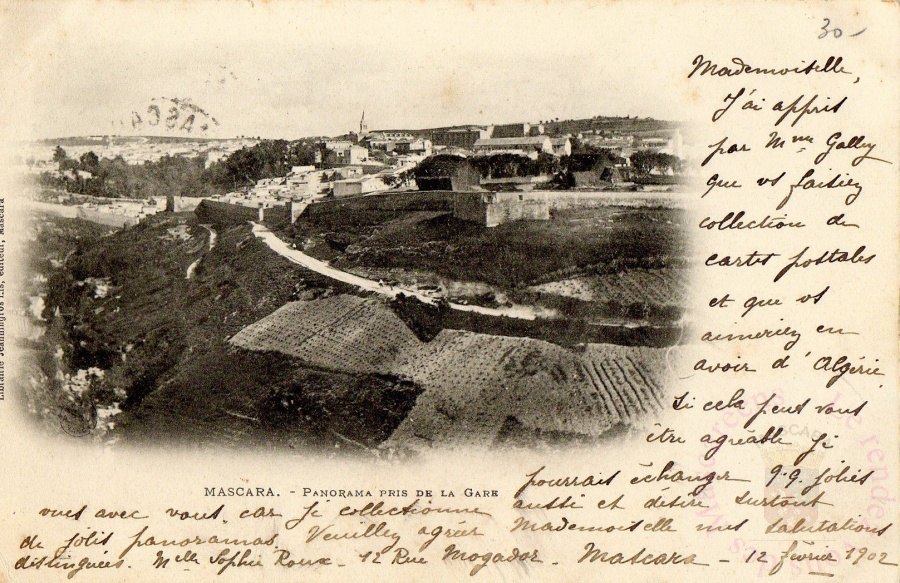 30-
Mademoiselle,
J'ai appris
par Mme Galley
que vs faisiez
collection de
cartes postales
et que vs
aimeriez en
avoir d'Algérie
Si cela peut vous
être agréable je
pourrais échanger q.q. jolies
vues avec vous, car je collectionne aussi et désire surtout
de jolis panoramas. Veuillez agréer Mademoiselle mes salutations
distinguées. Melle Sophie Roux - 12 Rue Mogador - Mascara - 12 février 1902
MASCARA. - PANORAMA PRIS DE LA GARE
Librairie Jeanningros fils, éditeur, Mascara